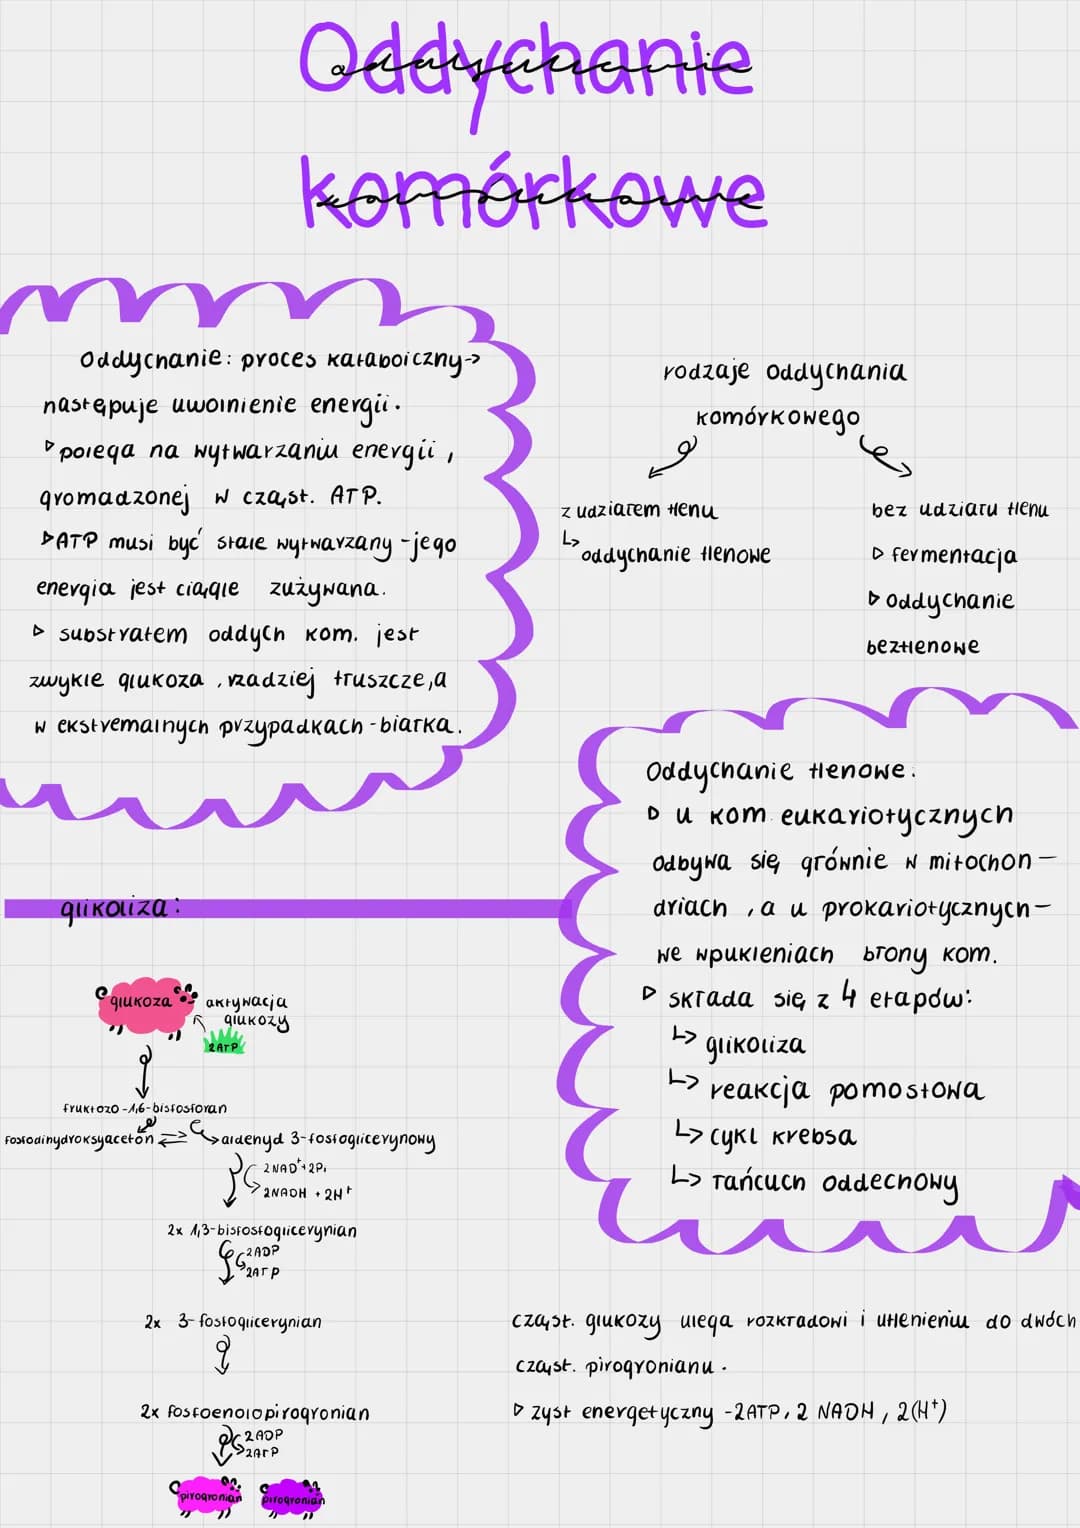 Oddychanie
komórkowe
Oddychanie: proces kataboliczny->
następuje uwolnienie energii.
▹polega na wytwarzaniu energii,
gromadzonej w cząst. ATP.
▹ATP musi być stale wytwarzany -jego
energia jest ciągle zużywana.
▹ substratem oddych kom. jest
zwykle glukoza, rzadziej tłuszcze, a
w ekstremalnych przypadkach -białka.
rodzaje oddychania
komórkowego
z udziałem tlenu
↳ oddychanie tlenowe
bez udziału tlenu
▹ fermentacja
▹ oddychanie
beztlenowe
Oddychanie tlenowe:
▹ u kom. eukariotycznych
odbywa się głównie w mitochon-
driach, a u prokariotycznych-
we wpukleniach błony kom.
▹ składa się z 4 etapów:
↳ glikoliza
↳ reakcja pomostowa
↳ cykl Krebsa
↳ łańcuch oddechowy
glikoliza:
glukoza
aktywacja
glukozy
2ATP
fruktozo-1,6-bisfosforan
fosfodihydroksyaceton ⇌ aldehyd 3-fosfoglicerynowy
2NAD⁺+2Pi
2NADH + 2H⁺
2x 1,3-bisfosfoglicerynian
2ADP
2ATP
2x 3-fosfoglicerynian
2x fosfoenolopirogronian
2ADP
2ATP
pirogronian pirogronian
cząst. glukozy ulega rozkładowi i utlenieniu do dwóch
cząst. pirogronianu.
▹ zysk energetyczny -2ATP, 2 NADH, 2(H⁺)